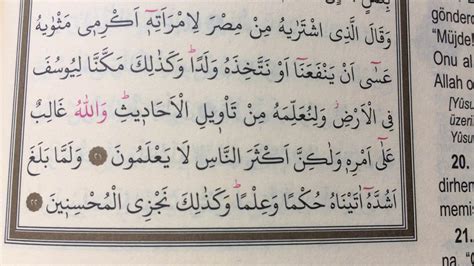 وَقَالَ الَّذِى اشْتَرٰيهُ مِنْ مِصْرَ لِامْرَاَتِه۪ٓ اَكْرِم۪ى مَثْوٰيهُ
عَسٰٓى اَنْ يَنْفَعَنَٓا اَوْ نَتَّخِذَهُ وَلَدًاۜ وَكَذٰلِكَ مَكَّنَّا لِيُوسُفَ
فِى الْاَرْضِۘ وَلِنُعَلِّمَهُ مِنْ تَأْو۪يلِ الْاَحَاد۪يثِۜ وَاللّٰهُ غَالِبٌ
عَلٰٓى اَمْرِه۪ وَلٰكِنَّ اَكْثَرَ النَّاسِ لَا يَعْلَمُونَ ٢١ وَلَمَّا بَلَغَ
اَشُدَّهُٓ اٰتَيْنَاهُ حُكْمًا وَعِلْمًاۜ وَكَذٰلِكَ نَجْزِى الْمُحْسِن۪ينَ ٢٢
gönderd
"Müjde!
Onu al
Allah o
[Yûsu
üzeri
Yûsu
20.
dirhem
memis
21.
na, "O